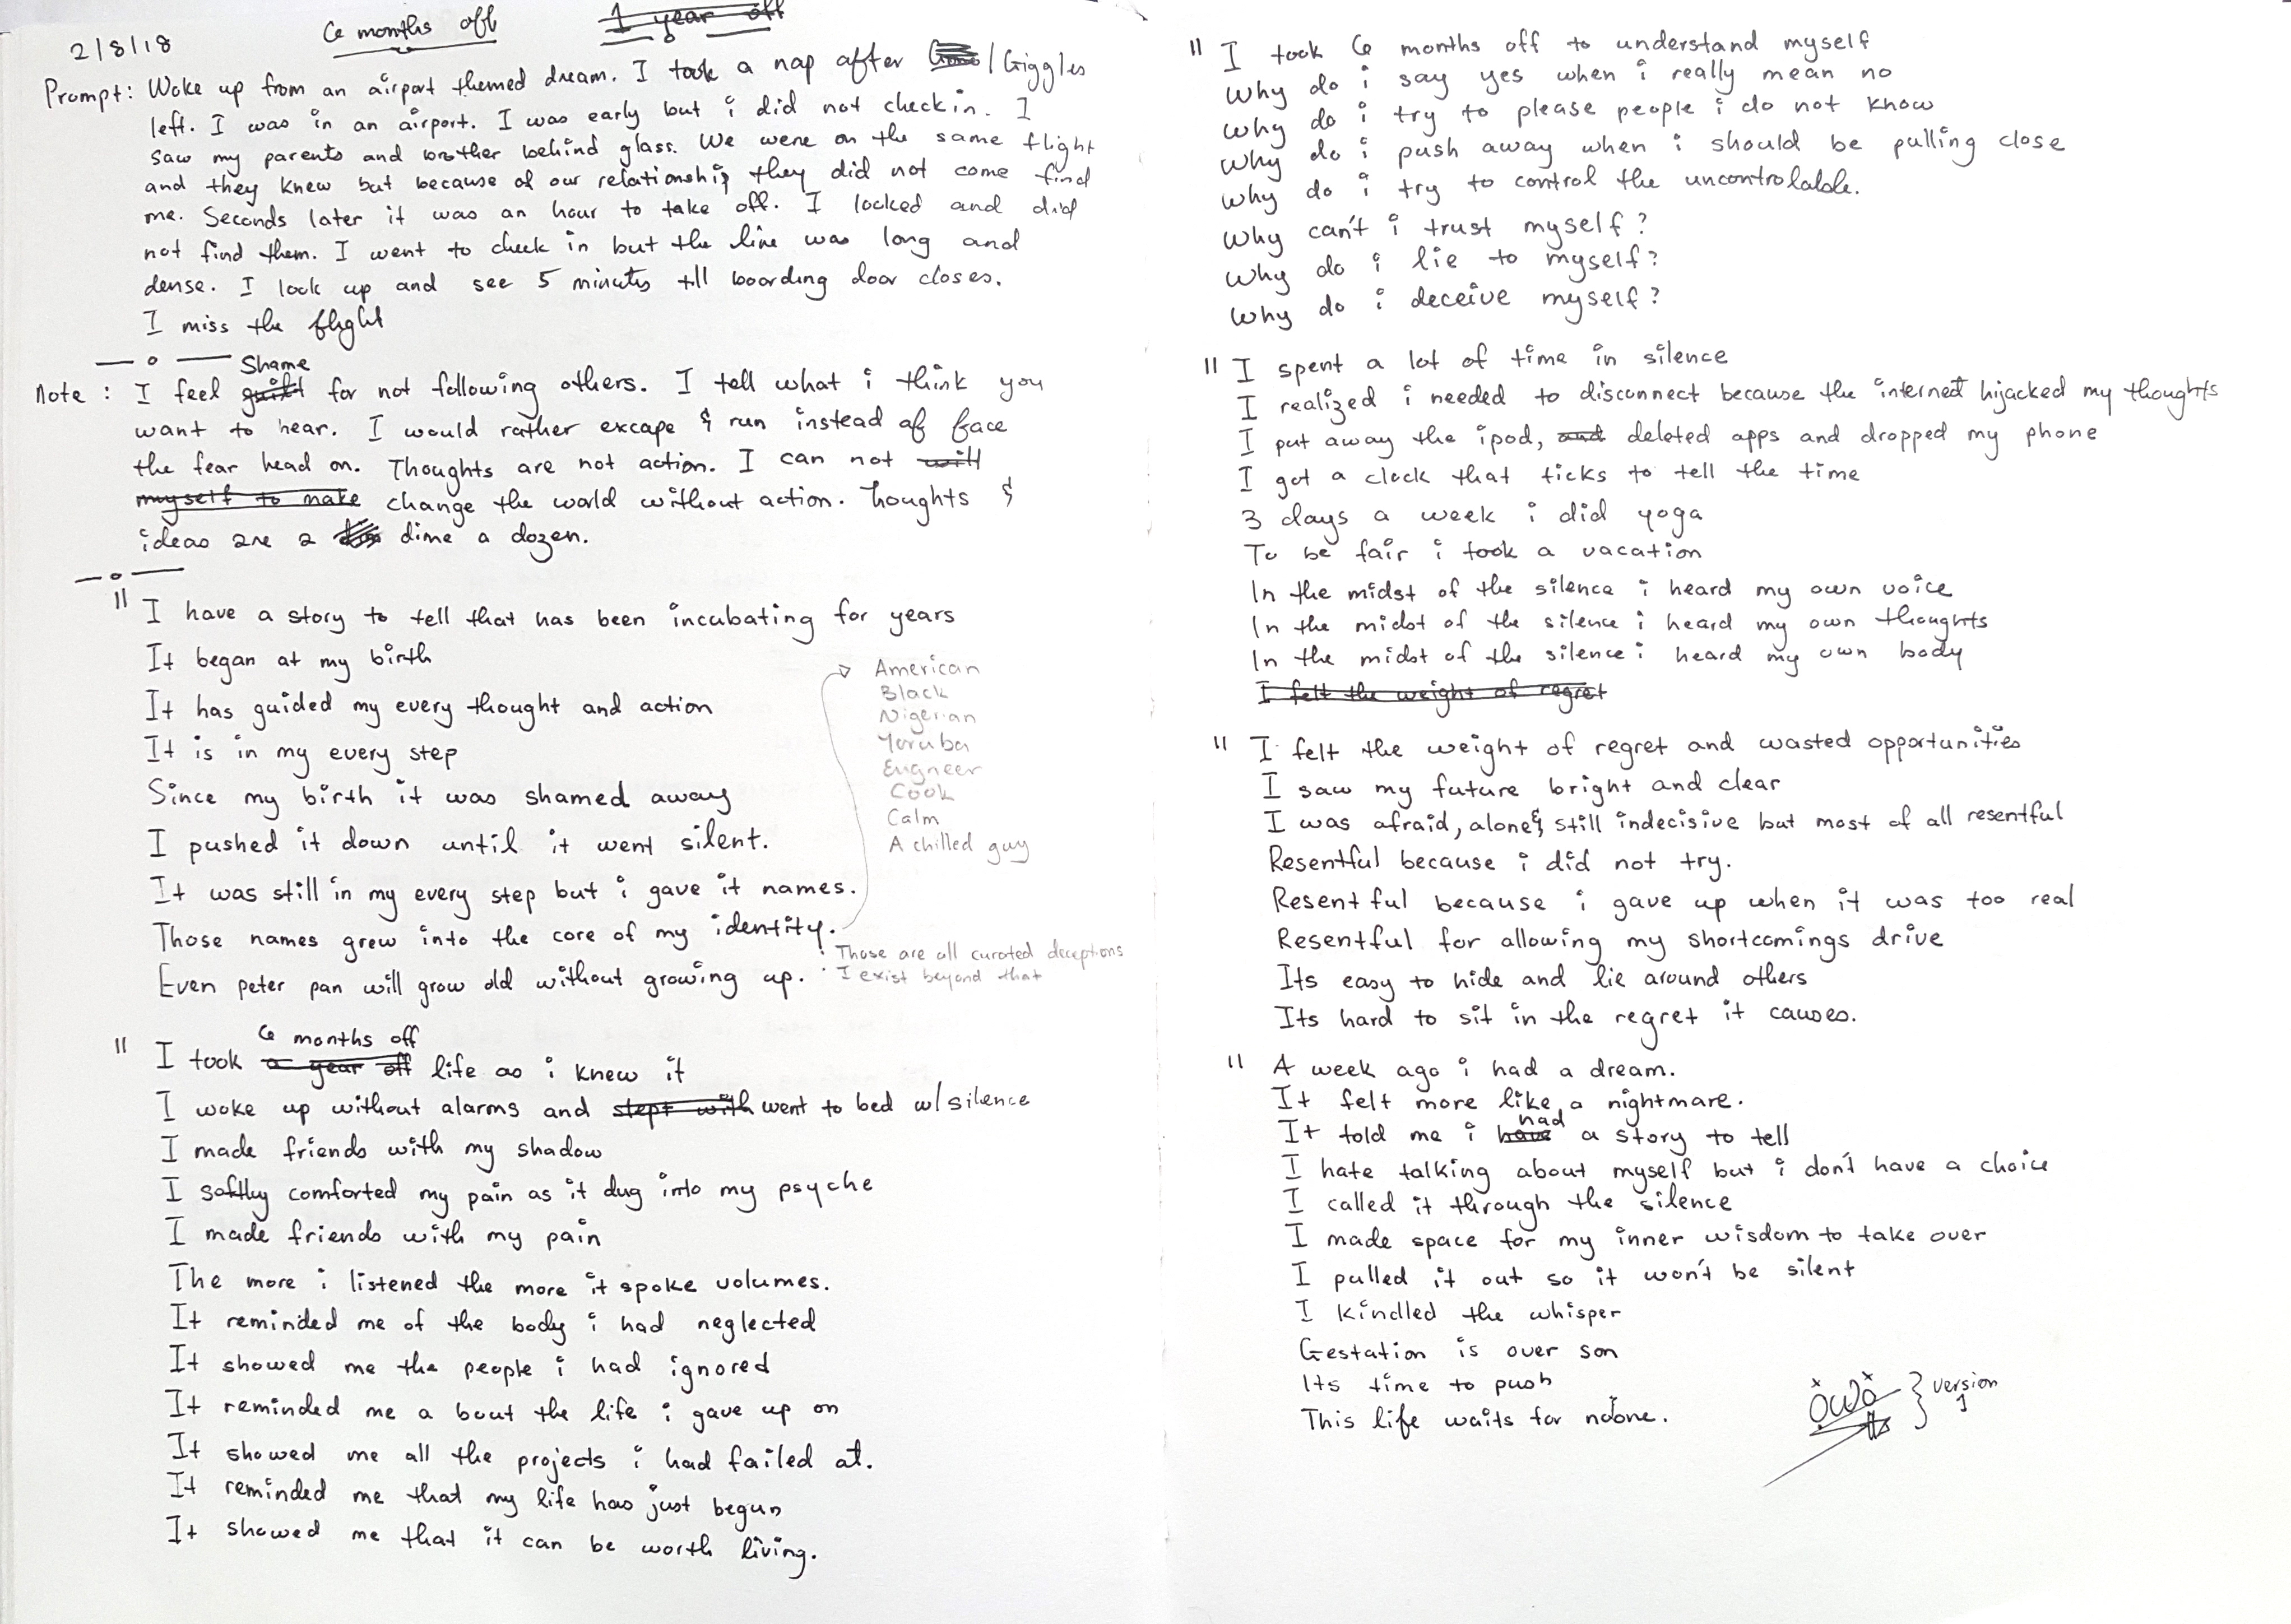 2/8/18
6 months off
1 year off
Prompt: Woke up from an airport themed dream. I took a nap after / Giggles
left. I was in an airport. I was early but i did not checkin. I
saw my parents and brother behind glass. We were on the same flight
and they knew but because of our relationship they did not come find
me. Seconds later it was an hour to take off. I looked and did
not find them. I went to check in but the line was long and
dense. I look up and see 5 minutes till boarding door closes.
I miss the flight
— o —
Shame
Note : I feel guilt for not following others. I tell what i think you
want to hear. I would rather excape & run instead of face
the fear head on. Thoughts are not action. I can not will
myself to make change the world without action. Thoughts &
ideas are a dime a dozen.
— o —
" I have a story to tell that has been incubating for years
It began at my birth
It has guided my every thought and action
It is in my every step
Since my birth it was shamed away
I pushed it down until it went silent.
It was still in my every step but i gave it names.
Those names grew into the core of my identity.
Even peter pan will grow old without growing up.
American
Black
Nigerian
Yoruba
Engneer
Cook
Calm
A chilled guy
Those are all curated deceptions
I exist beyond that
6 months off
" I took a year off life as i knew it
I woke up without alarms and slept with went to bed w/silence
I made friends with my shadow
I softly comforted my pain as it dug into my psyche
I made friends with my pain
The more i listened the more it spoke volumes.
It reminded me of the body i had neglected
It showed me the people i had ignored
It reminded me a bout the life i gave up on
It showed me all the projects i had failed at.
It reminded me that my life has just begun
It showed me that it can be worth living.
" I took 6 months off to understand myself
Why do i say yes when i really mean no
Why do i try to please people i do not know
Why do i push away when i should be pulling close
Why do i try to control the uncontrolable.
Why can't i trust myself?
Why do i lie to myself?
Why do i deceive myself?
" I spent a lot of time in silence
I realized i needed to disconnect because the internet hijacked my thoughts
I put away the ipod, and deleted apps and dropped my phone
I got a clock that ticks to tell the time
3 days a week i did yoga
To be fair i took a vacation
In the midst of the silence i heard my own voice
In the midst of the silence i heard my own thoughts
In the midst of the silence i heard my own body
I felt the weight of regret
" I felt the weight of regret and wasted opportunities
I saw my future bright and clear
I was afraid, alone & still indecisive but most of all resentful
Resentful because i did not try.
Resentful because i gave up when it was too real
Resentful for allowing my shortcomings drive
Its easy to hide and lie around others
Its hard to sit in the regret it causes.
" A week ago i had a dream.
It felt more like a nightmare.
had
It told me i have a story to tell
I hate talking about myself but i don't have a choice
I called it through the silence
I made space for my inner wisdom to take over
I pulled it out so it won't be silent
I kindled the whisper
Gestation is over son
Its time to push
This life waits for noone.
version
1